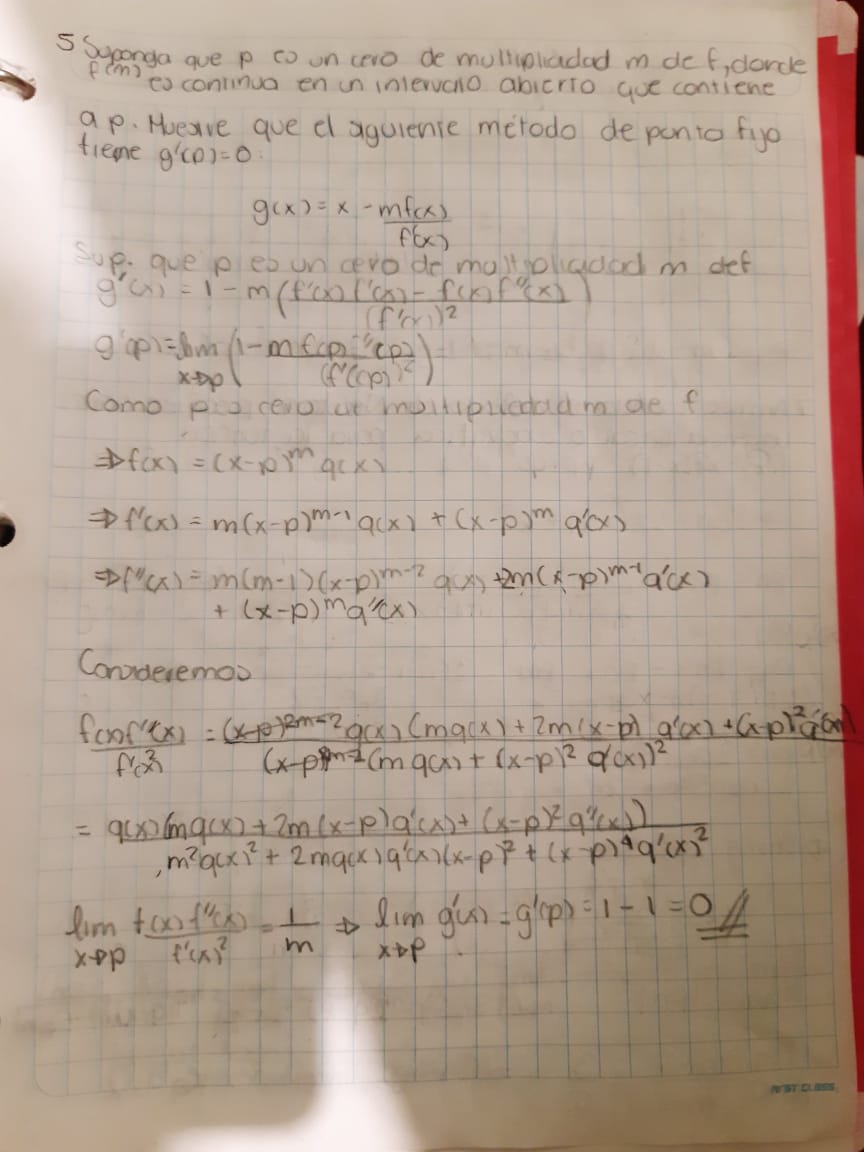 5 Suponga que p es un cero de multiplicidad m de f, donde
f^(m) es continua en un intervalo abierto que contiene
a p. Muestre que el siguiente método de punto fijo
tiene g'(p)=0:
g(x) = x - mf(x)/f'(x)
Sup. que p es un cero de multiplicidad m de f
g'(x) = 1 - m(f'(x)f'(x) - f(x)f''(x)/(f'(x))^2)
g'(p) = lim x→p (1 - m f(p)f''(p)/(f'(p))^2)
Como p es cero de multiplicidad m de f
⇒ f(x) = (x-p)^m q(x)
⇒ f'(x) = m(x-p)^{m-1} q(x) + (x-p)^m q'(x)
⇒ f''(x) = m(m-1)(x-p)^{m-2} q(x) + 2m(x-p)^{m-1} q'(x)
+ (x-p)^m q''(x)
Consideremos
f(x)f''(x)/f'(x)^2 = (x-p)^{2m-2} q(x)(mq(x) + 2m(x-p) q'(x) + (x-p)^2 q''(x))/(x-p)^{2m-2}(mq(x) + (x-p)^2 q'(x))^2
= q(x)(mq(x) + 2m(x-p)q'(x) + (x-p)^2 q''(x))/m^2q(x)^2 + 2mq(x)q'(x)(x-p)^2 + (x-p)^4 q'(x)^2
lim x→p f(x)f''(x)/f'(x)^2 = 1/m ⇒ lim x→p g'(x) = g'(p) = 1 - 1 = 0 //
FIRST CLASS